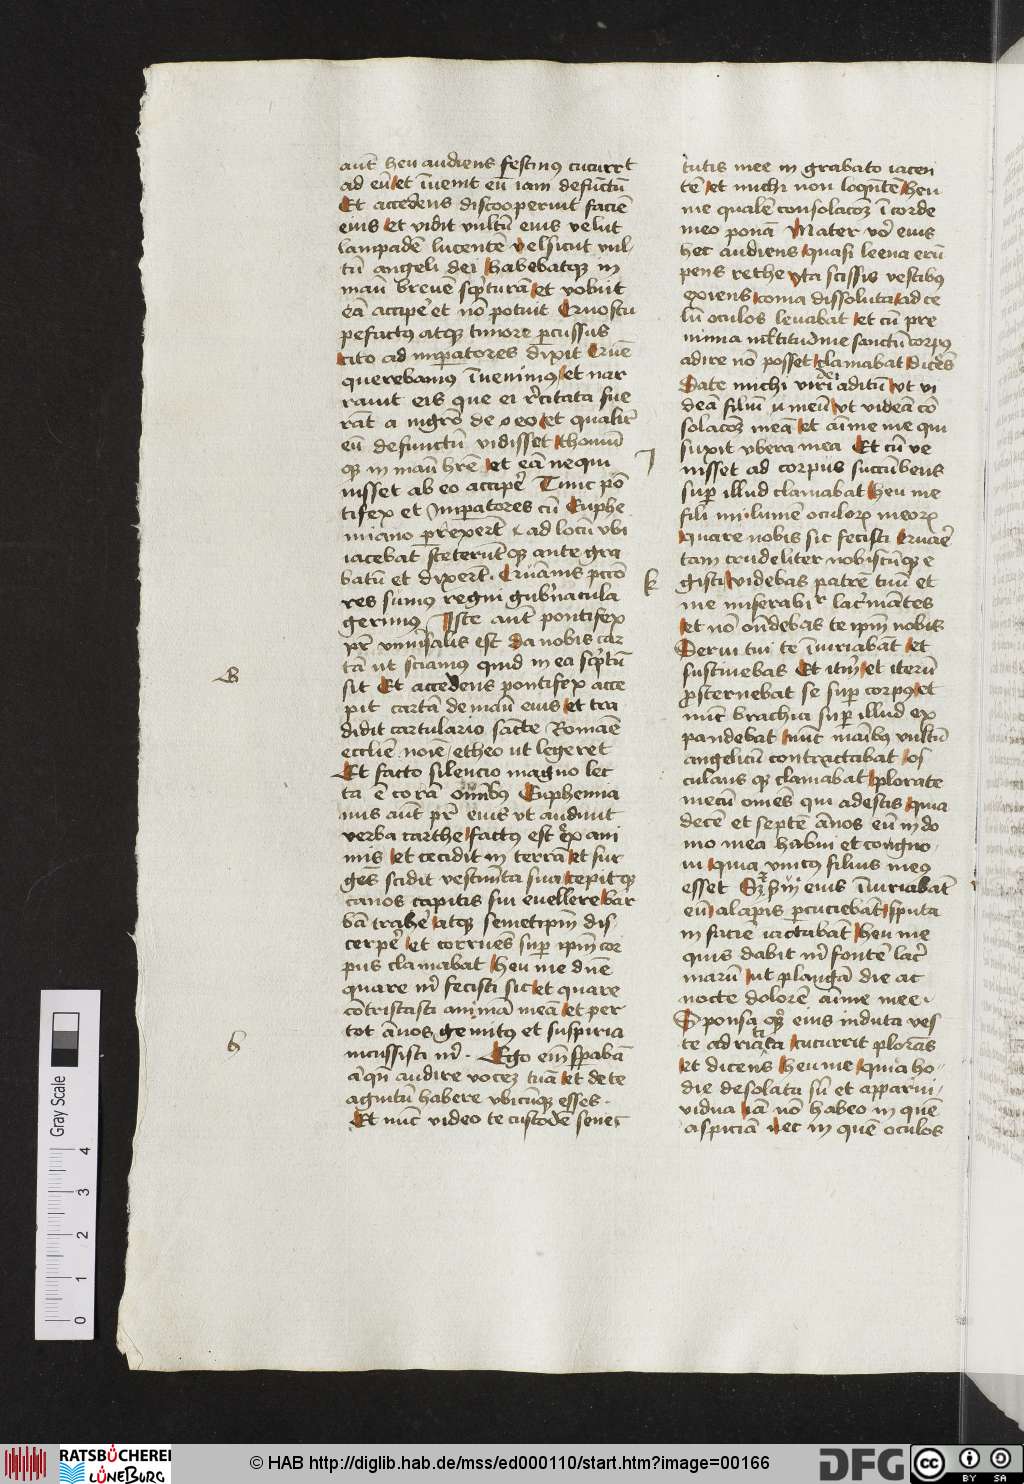 aut̄ heu audiens festinus cucurrt
ad eū et īuenit eū iam defūctū
Et accedens discooperuit faciē
eius et vidit vultū eius velut
lampadē lucentē vel sicut vul-
tū angeli dei habebatqꝫ in
manū brevē sc̄pturā et voluit
eā accipe̓ et nō potuit Qui ostu
pefactus atqꝫ timore ꝑcussus
cito ad imꝑatores dixit Quē
querebamus īuenimus et nar
ravit eis que ei r̓citata fue
rāt a nigro de eo et qualit̓
eū defunctū vidisset thomū
qꝫ in manū hr̄e et eā nequi
nisset ab eo accipe̓ Tunc pō
tifex et Imꝑatores cū Euphe
miano ꝑrexer̄t ad locū ubi
iacebat steterūtqꝫ ante gra
batū et dixerūt Quāmis pccō
res sumus regni gub̓nacula
gerimus Iste aut̄ pontifex
pr̄ univ̓salis est Da nobis car
tā ut sciamus quid in ea sc̓ptū
sit Et accedens pontifex acce
pit cartā de manū eius et tra
didit cartulario sancte Romāe
ecclīe noīe etheo ut legeret
Et facto silencio magno lec
ta ē corā om̄ibus Euphemia
nus aut̄ pr̄ eius ut audiuit
verba carthe factus est ex ani
mis et cecidit in terrā et sur
gēs scidit vestimēta sua cepitqꝫ
canos capitis sui euellere bar
bā trahe̓ atqꝫ semetipm̄ dis
cerpe̓ et corruēs suꝑ ipm̄ cor
pus clamabat heu me dn̄e
quare m̄ fecisti sic et quare
cōtristasti animā meā et per
tot ānos gemitus et suspiria
incussisti m̄ Ego em̄ sꝑabā
a̓ qn̄ audire vocez tuā et de te
agnitū habere ubicūqꝫ esses
Et nūc video te custodē senec
B
G
tutis mee in grabato iacen
tē et michi non loqn̄tē heu
me qualē consolacoꝫ ī corde
meo ponā Mater vo̓ eius
hec audiens quasi leena erū
pens rethe yta scissis vestibus
exiens coma dissoluta ad ce
lū oculos levabat et cū pre
nimia ml̓titudīne sanctū corpus
adire nō posset clamabat dicēs
Date michi viri dei aditū ut vi
deā filiū meū ut videā cō
solacoꝫ meā et aīme me qui
suxit ubera mea Et cū ve
nisset ad corpus succūbens
suꝑ illud clamabat heu me
fili mi lumē oculoꝝ meoꝝ
quare nobis sic fecisti Quare̓
tam crudeliter nobiscūqꝫ e
gisti videbas patrē tuū et
me miserabil̓r lac̓mātes
et nō on̄debas te ipm̄ nobis
Servi tui te īiuriabāt et
sustinebas Et itm̄ et iterū
ꝓsternebat se suꝑ corpus et
nūc brachia suꝑ illud ex
pandebat nūc manibus vultū
angelicū contractabat os
culans qꝫ clamabat plorate
mecū omēs qui adestis quia
decē et septē ānos eū in do
mo mea habui et congno-
ui quia unicus filius meus
esset Sꝫ servi eius īiuriabāt
eū alapis ꝑcuciebāt sputa
in faciē iactabāt heu me
quis dabit m̄ fontē lac̓
marū ut plangā die ac
nocte dolorē aīme mee
Sponsa qꝫ eius induta ves
te adriatica cucurrit plorās
et dicens heu me quia ho-
die desolata sū et apparui-
vidua iā nō habeo in quē
aspiciā nec in quē oculos
J
k
Gray Scale
0 1 2 3 4
RATSBÜCHEREI
LÜNEBURG
© HAB http://diglib.hab.de/mss/ed000110/start.htm?image=00166
DFG
cc
BY SA